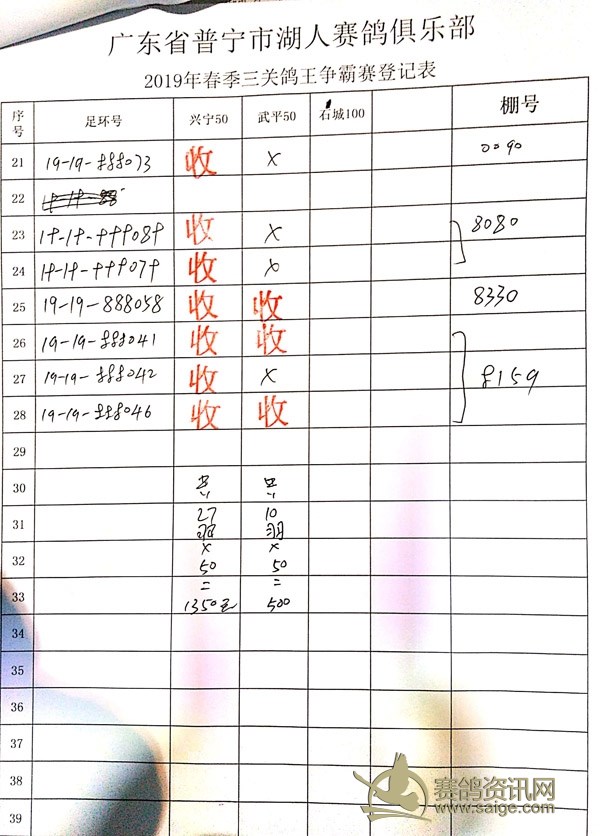 广东省普宁市湖人赛鸽俱乐部
2019年春季三关鸽王争霸赛登记表
序号 足环号 兴宁50 武平50 石城100 棚号
21 19-19-888073 收 × 0090
22
23 19-19-888089 收 × 8080
24 19-19-888079 收 ×
25 19-19-888058 收 收 8330
26 19-19-888041 收 收
27 19-19-888042 收 × 8159
28 19-19-888046 收 收
29
30 共 共
31 27羽 10羽
32 ×50 ×50
33 =1350元 =500
34
35
36
37
38
39
赛鸽资讯网
www.saige.com